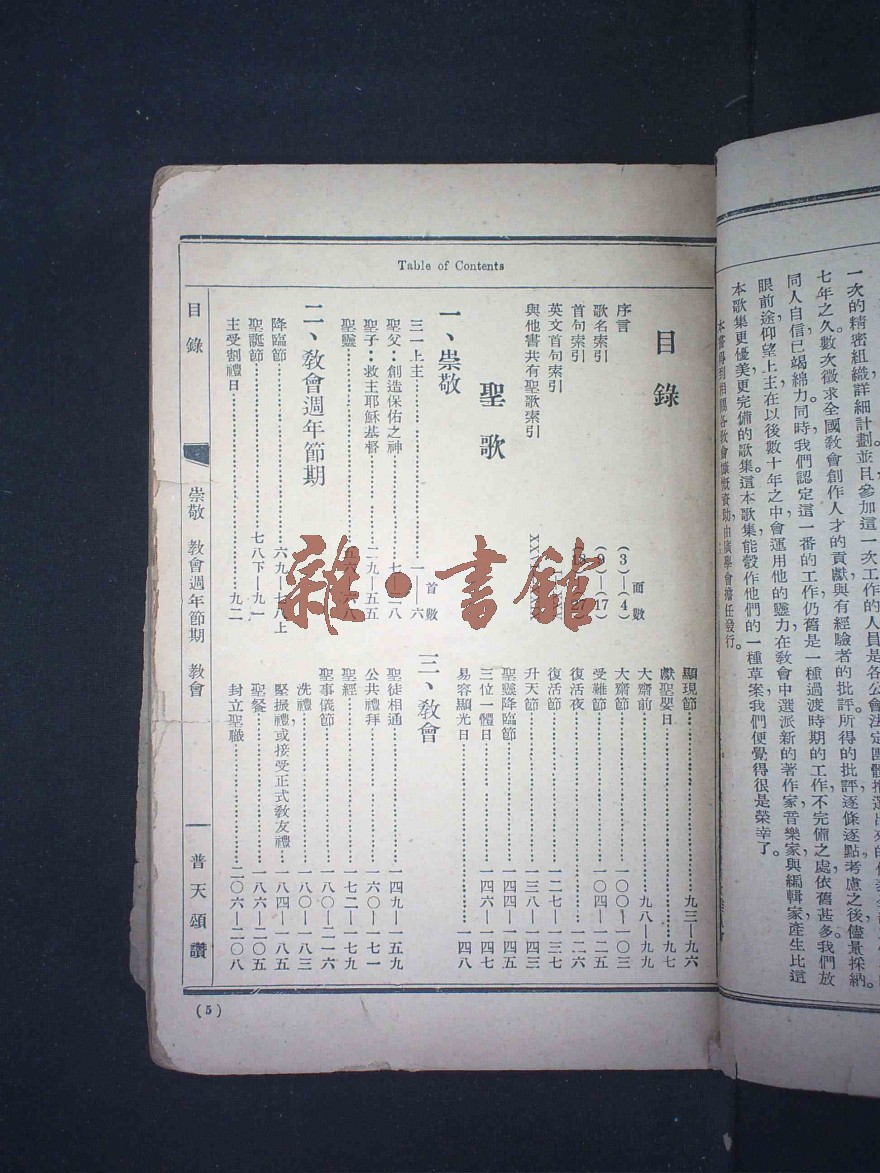 一次的精密組織詳細計劃並且參加這一次工作的人員是各公會法定團體推選出來的
七年之久數次徵求全國教會創作人才的貢獻與有經驗者的批評所得的批評逐條逐點考慮之後儘量採納。
同人自信已竭綿力同時我們認定這一番的工作仍舊是一種過渡時期的工作，不完備之處依舊甚多。我們放
眼前途仰望上主在以後數十年之中會運用他的靈力在教會中選派新的著作家音樂家與編輯家產生比這
本歌集更優美更完備的歌集。這本歌集能彀作他們的一種草案我們便覺得很是榮幸了。
由廣學會擔任發行。
Table of Contents
目錄
面數
序言 (3)—(4)
歌名索引 (9)—(17)
首句索引 (18)—(27)
英文首句索引
與他書共有聖歌索引
聖歌
首數
一、崇敬
三一上主 一—六
聖父：創造保佑之神 七—二八
聖子：救主耶穌基督 二九—五五
聖靈 五六—六八
二、教會週年節期
降臨節 六九—七八上
聖誕節 七八下—九一
主受割禮日 九二
顯現節 九三—九六
獻聖嬰日 九七
大齋前 九八—九九
大齋節 一〇〇—一〇三
受難節 一〇四—一二五
復活夜 一二六
復活節 一二七—一三七
升天節 一三八—一四三
聖靈降臨節 一四四—一四五
三位一體日 一四六—一四七
易容顯光日 一四八
三、教會
聖徒相通 一四九—一五九
公共禮拜 一六〇—一七一
聖經 一七二—一七九
聖事儀節 一八〇—二一六
洗禮 一八〇—一八三
堅振禮或接受正式教友禮 一八四—一八五
聖餐 一八六—二〇五
封立聖職 二〇六—二〇八
目錄 崇敬 教會週年節期 教會 普天頌讚
(5)
雜·書館